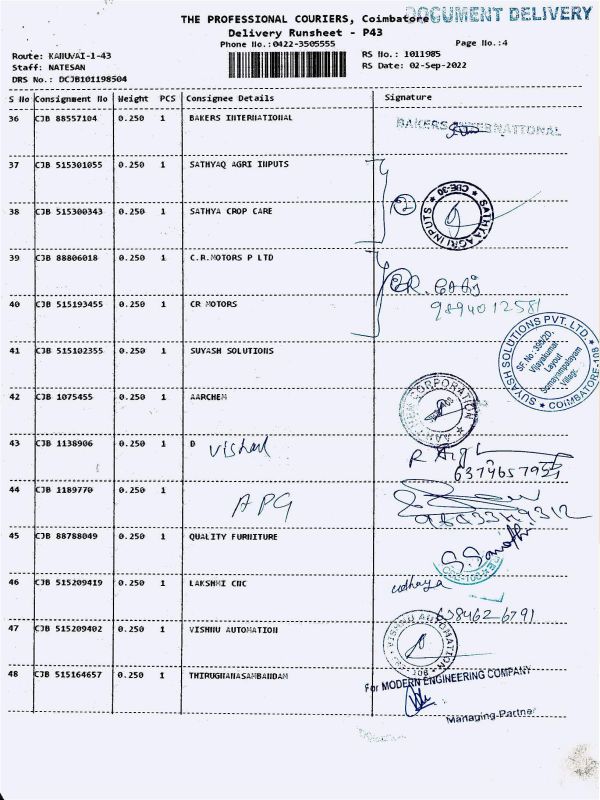 THE PROFESSIONAL COURIERS, Coimbatore
DOCUMENT DELIVERY
Delivery Runsheet - P43
Phone No.:0422-3505555
Page No.:4
Route: KANUVAI-1-43
RS No.: 1011985
Staff: NATESAN
RS Date: 02-Sep-2022
DRS No.: DCJB101198504
S No Consignment No Weight PCS Consignee Details Signature
36 CJB 88557104 0.250 1 BAKERS INTERNATIONAL
BAKERS INTERNATIONAL
37 CJB 515301055 0.250 1 SATHYAQ AGRI INPUTS
38 CJB 515300343 0.250 1 SATHYA CROP CARE
2
SATHYA AGRI INPUTS
CBE-30
39 CJB 88806018 0.250 1 C.R.MOTORS P LTD
2
40 CJB 515193455 0.250 1 CR MOTORS
9894012581
41 CJB 515102355 0.250 1 SUYASH SOLUTIONS
SUYASH SOLUTIONS PVT. LTD.
SF. No. 396/2D,
Vijayakumar
Layout
Somayimpalayam
Village,
COIMBATORE-108
42 CJB 1075455 0.250 1 AARCHEM
CORPORATION
43 CJB 1138906 0.250 1 D
Vishal
44 CJB 1189770 0.250 1
APG
45 CJB 88788049 0.250 1 QUALITY FURNITURE
46 CJB 515209419 0.250 1 LAKSHMI CNC
udhaya
47 CJB 515209402 0.250 1 VISHNU AUTOMATION
VISHNU AUTOMATION
48 CJB 515164657 0.250 1 THIRUGNANASAMBANDAM
For MODERN ENGINEERING COMPANY
Managing Partner